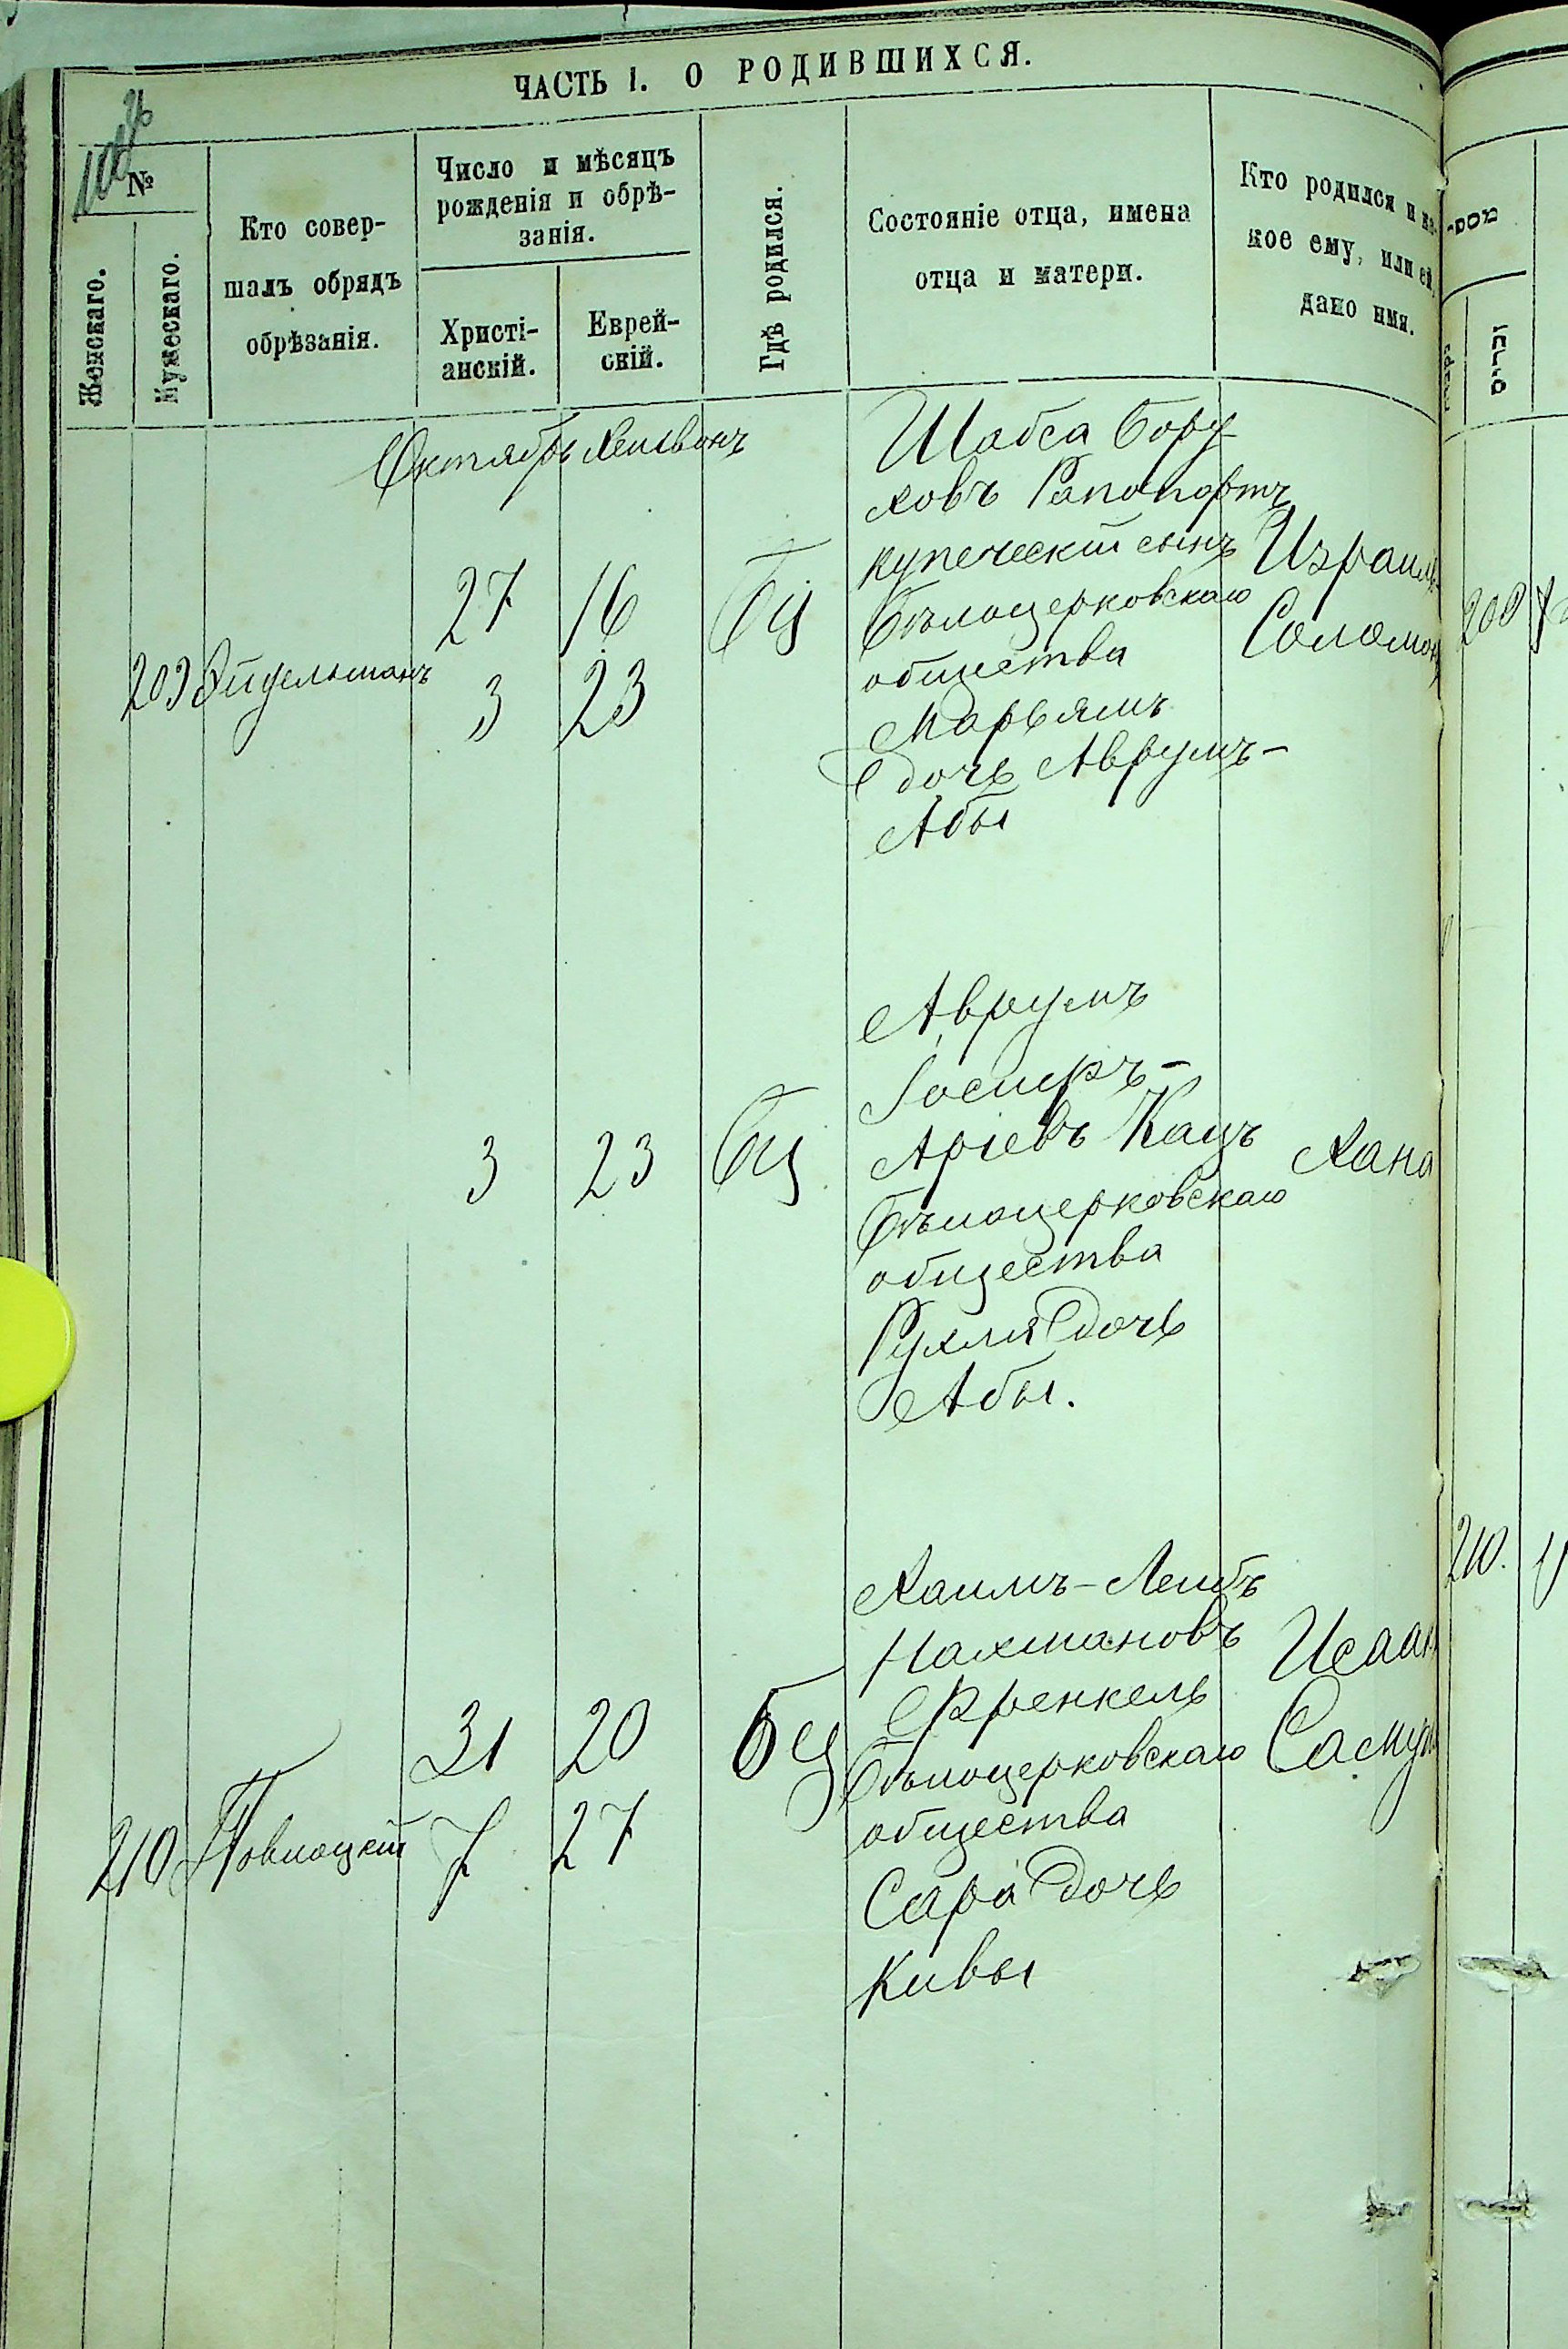 ЧАСТЬ I. О РОДИВШИХСЯ.
№
Женскаго.
Мужескаго.
Кто совер-
шалъ обрядъ
обрѣзанія.
Число и мѣсяцъ
рожденія и обрѣ-
занія.
Христі-
анскій.
Еврей-
скій.
Гдѣ родился.
Состояніе отца, имена
отца и матери.
Кто родился и ка-
кое ему, или ей,
дано имя.
Октябрь Хешвонъ
209 Эйдельманъ
27 16 Бц
3 23
Шабса Бору-
ховъ Рапопортъ
купеческій сынъ
Бѣлоцерковскаго
общества
Марьямъ
дочь Аврумъ-
Абы
Израиль-
Соломонъ
3 23 Бц
Аврумъ
Іосифъ-
Аріевъ Кацъ
Бѣлоцерковскаго
общества
Рухля дочь
Абы.
Хана
210
31 20 Бц
7 27
Хаимъ-Лейбъ
Нахмановъ
Френкель
Бѣлоцерковскаго
общества
Сара дочь
Кивы
Исаак
Самуи
210.